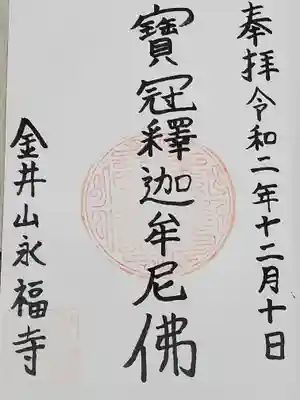 奉拝令和二年十二月十日
寶冠釋迦牟尼佛
金井山永福寺